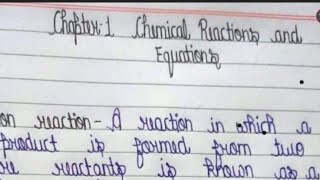 Chapter:1 Chemical Reactions and
Equations
on reaction- A reaction in which a
product is formed from two
re reactants is known as a